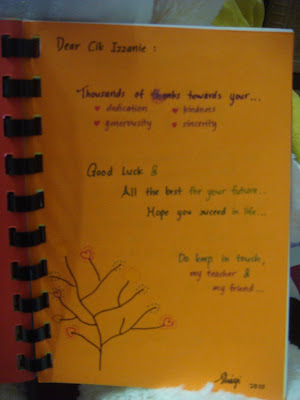 Dear Cik Izzanie :
Thousands of thanks towards your...
♥ dedication ♥ kindness
♥ generousity ♥ sincerity
Good Luck &
All the best for your future...
Hope you succeed in life...
Do keep in touch,
my teacher &
my friend...
2010